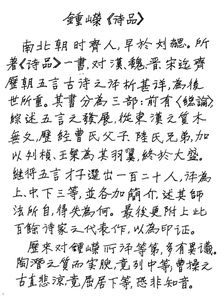 鍾嶸《詩品》
南北朝时齊人,早於刘勰。所
著《詩品》一書,对漢、魏、晋、宋迄齊
歷朝五言古诗之评析甚详,為後
世所重。其書分為三部:前有《總論》
综述五言之發展,從東漢之質木
無文,歷經曹氏父子、陸氏兄弟,加
以刘楨、王粲為其羽翼,終於大盛。
继将五言才子選出一百二十人,评為
上、中、下三等,並各加簡介,述其师
法所自,得失為何。最後更附上此
百餘詩家之代表作,以為印证。
歷來对鍾嶸所评等第,多有異議。
陶潛之質而实腴,竟列中等,曹操之
古直悲涼,竟居下等,恐非知音。